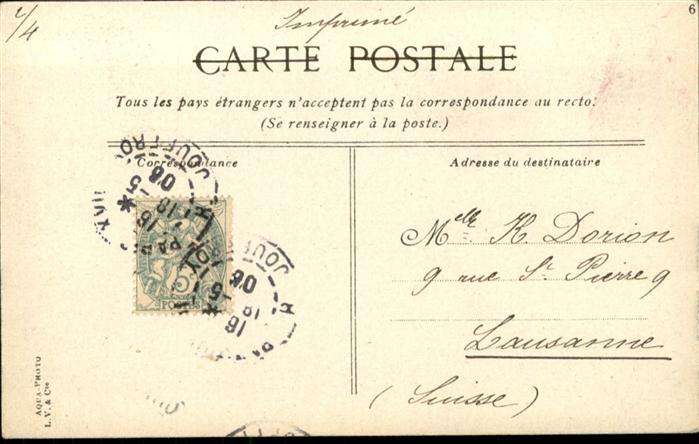 6
2/4
Imprimé
CARTE POSTALE
Tous les pays étrangers n'acceptent pas la correspondance au recto.
(Se renseigner à la poste.)
Correspondance
Adresse du destinataire
Melle K. Dorion
9 rue St. Pierre 9
Lausanne
(Suisse)
POSTES
JOUFFROY
18 -5
06
JOUF
16
-5
06
AQUA-PHOTO
L. V. & Cie